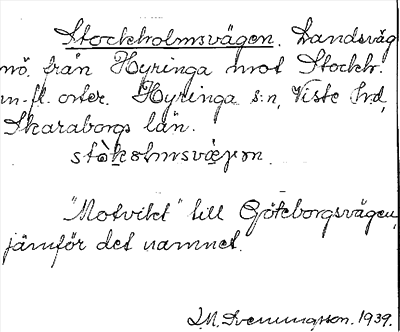 Stockholmsvägen. Landsväg
mö. från Hyringa mot Stockh.
m.fl. orter. Hyringa s:n, Viste hd,
Skaraborgs län.
"Motvikt" till Göteborgsvägen,
jämför det namnet.
1939.